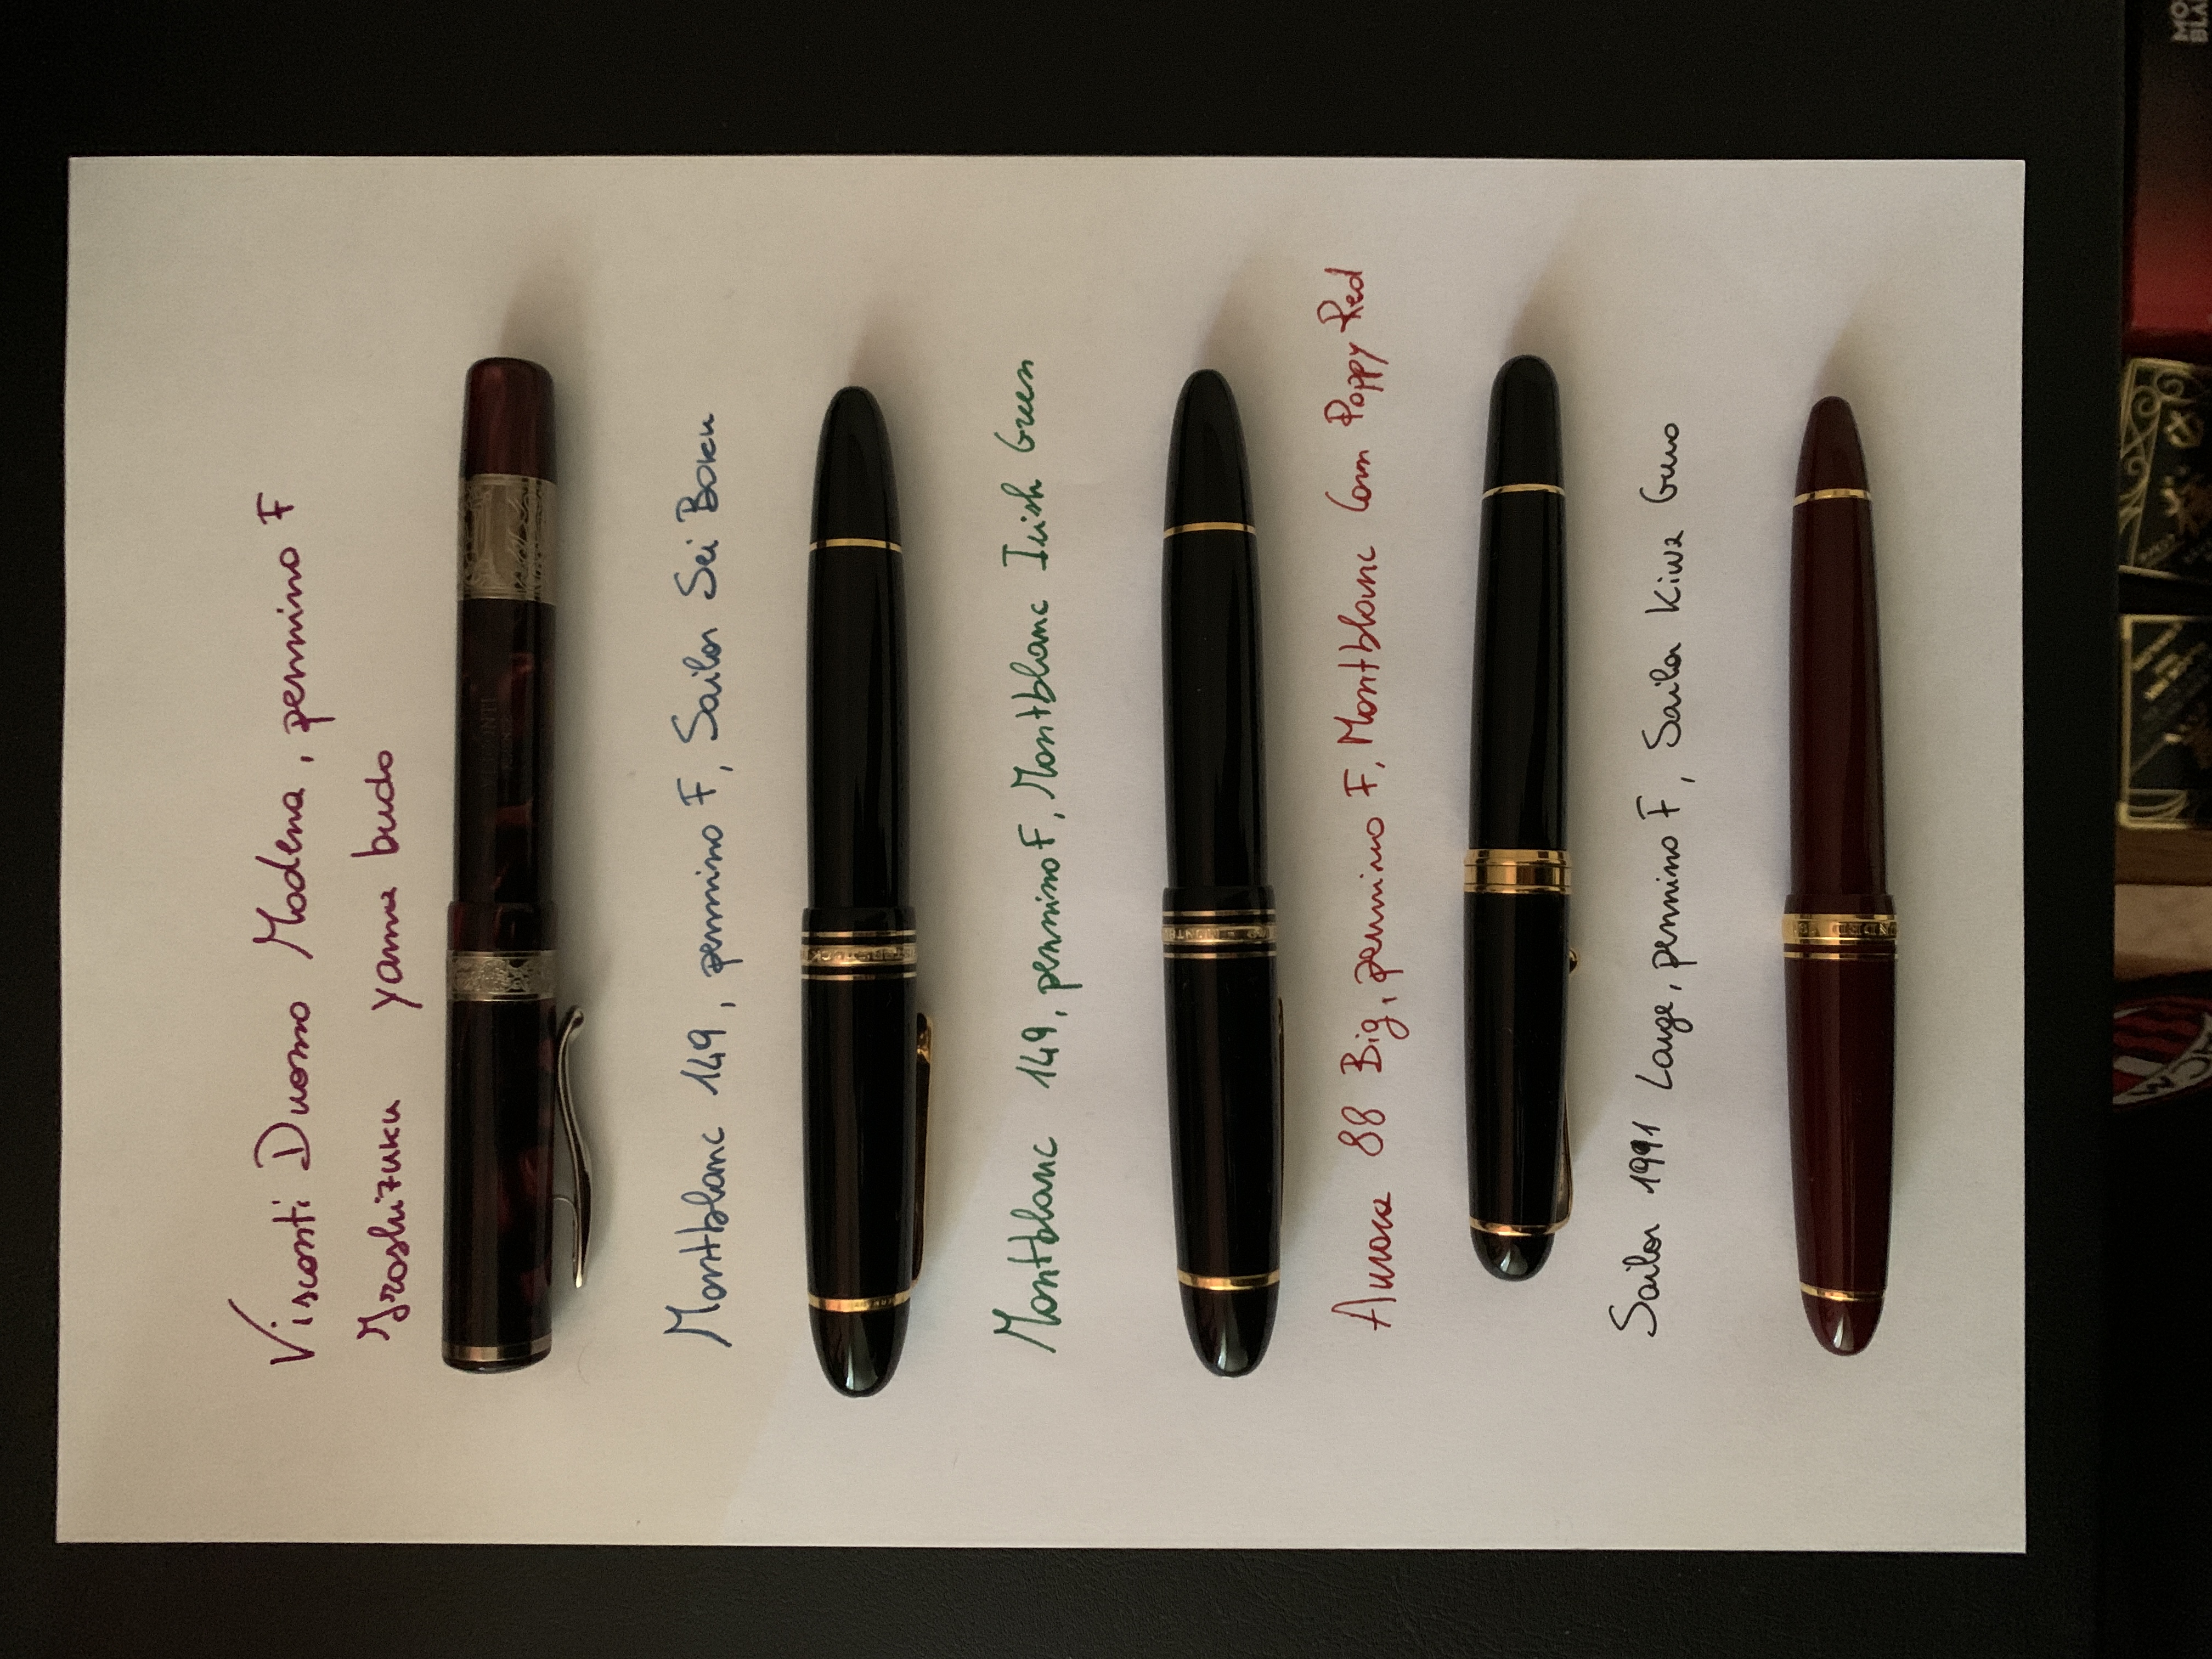 Visconti Duomo Modena, pennino F
Iroshizuku yama budo
Montblanc 149, pennino F, Sailor Sei Boku
Montblanc 149, pennino F, Montblanc Irish Green
Aurora 88 Big, pennino F, Montblanc Corn Poppy Red
Sailor 1991 Large, pennino F, Sailor Kiwa Guro